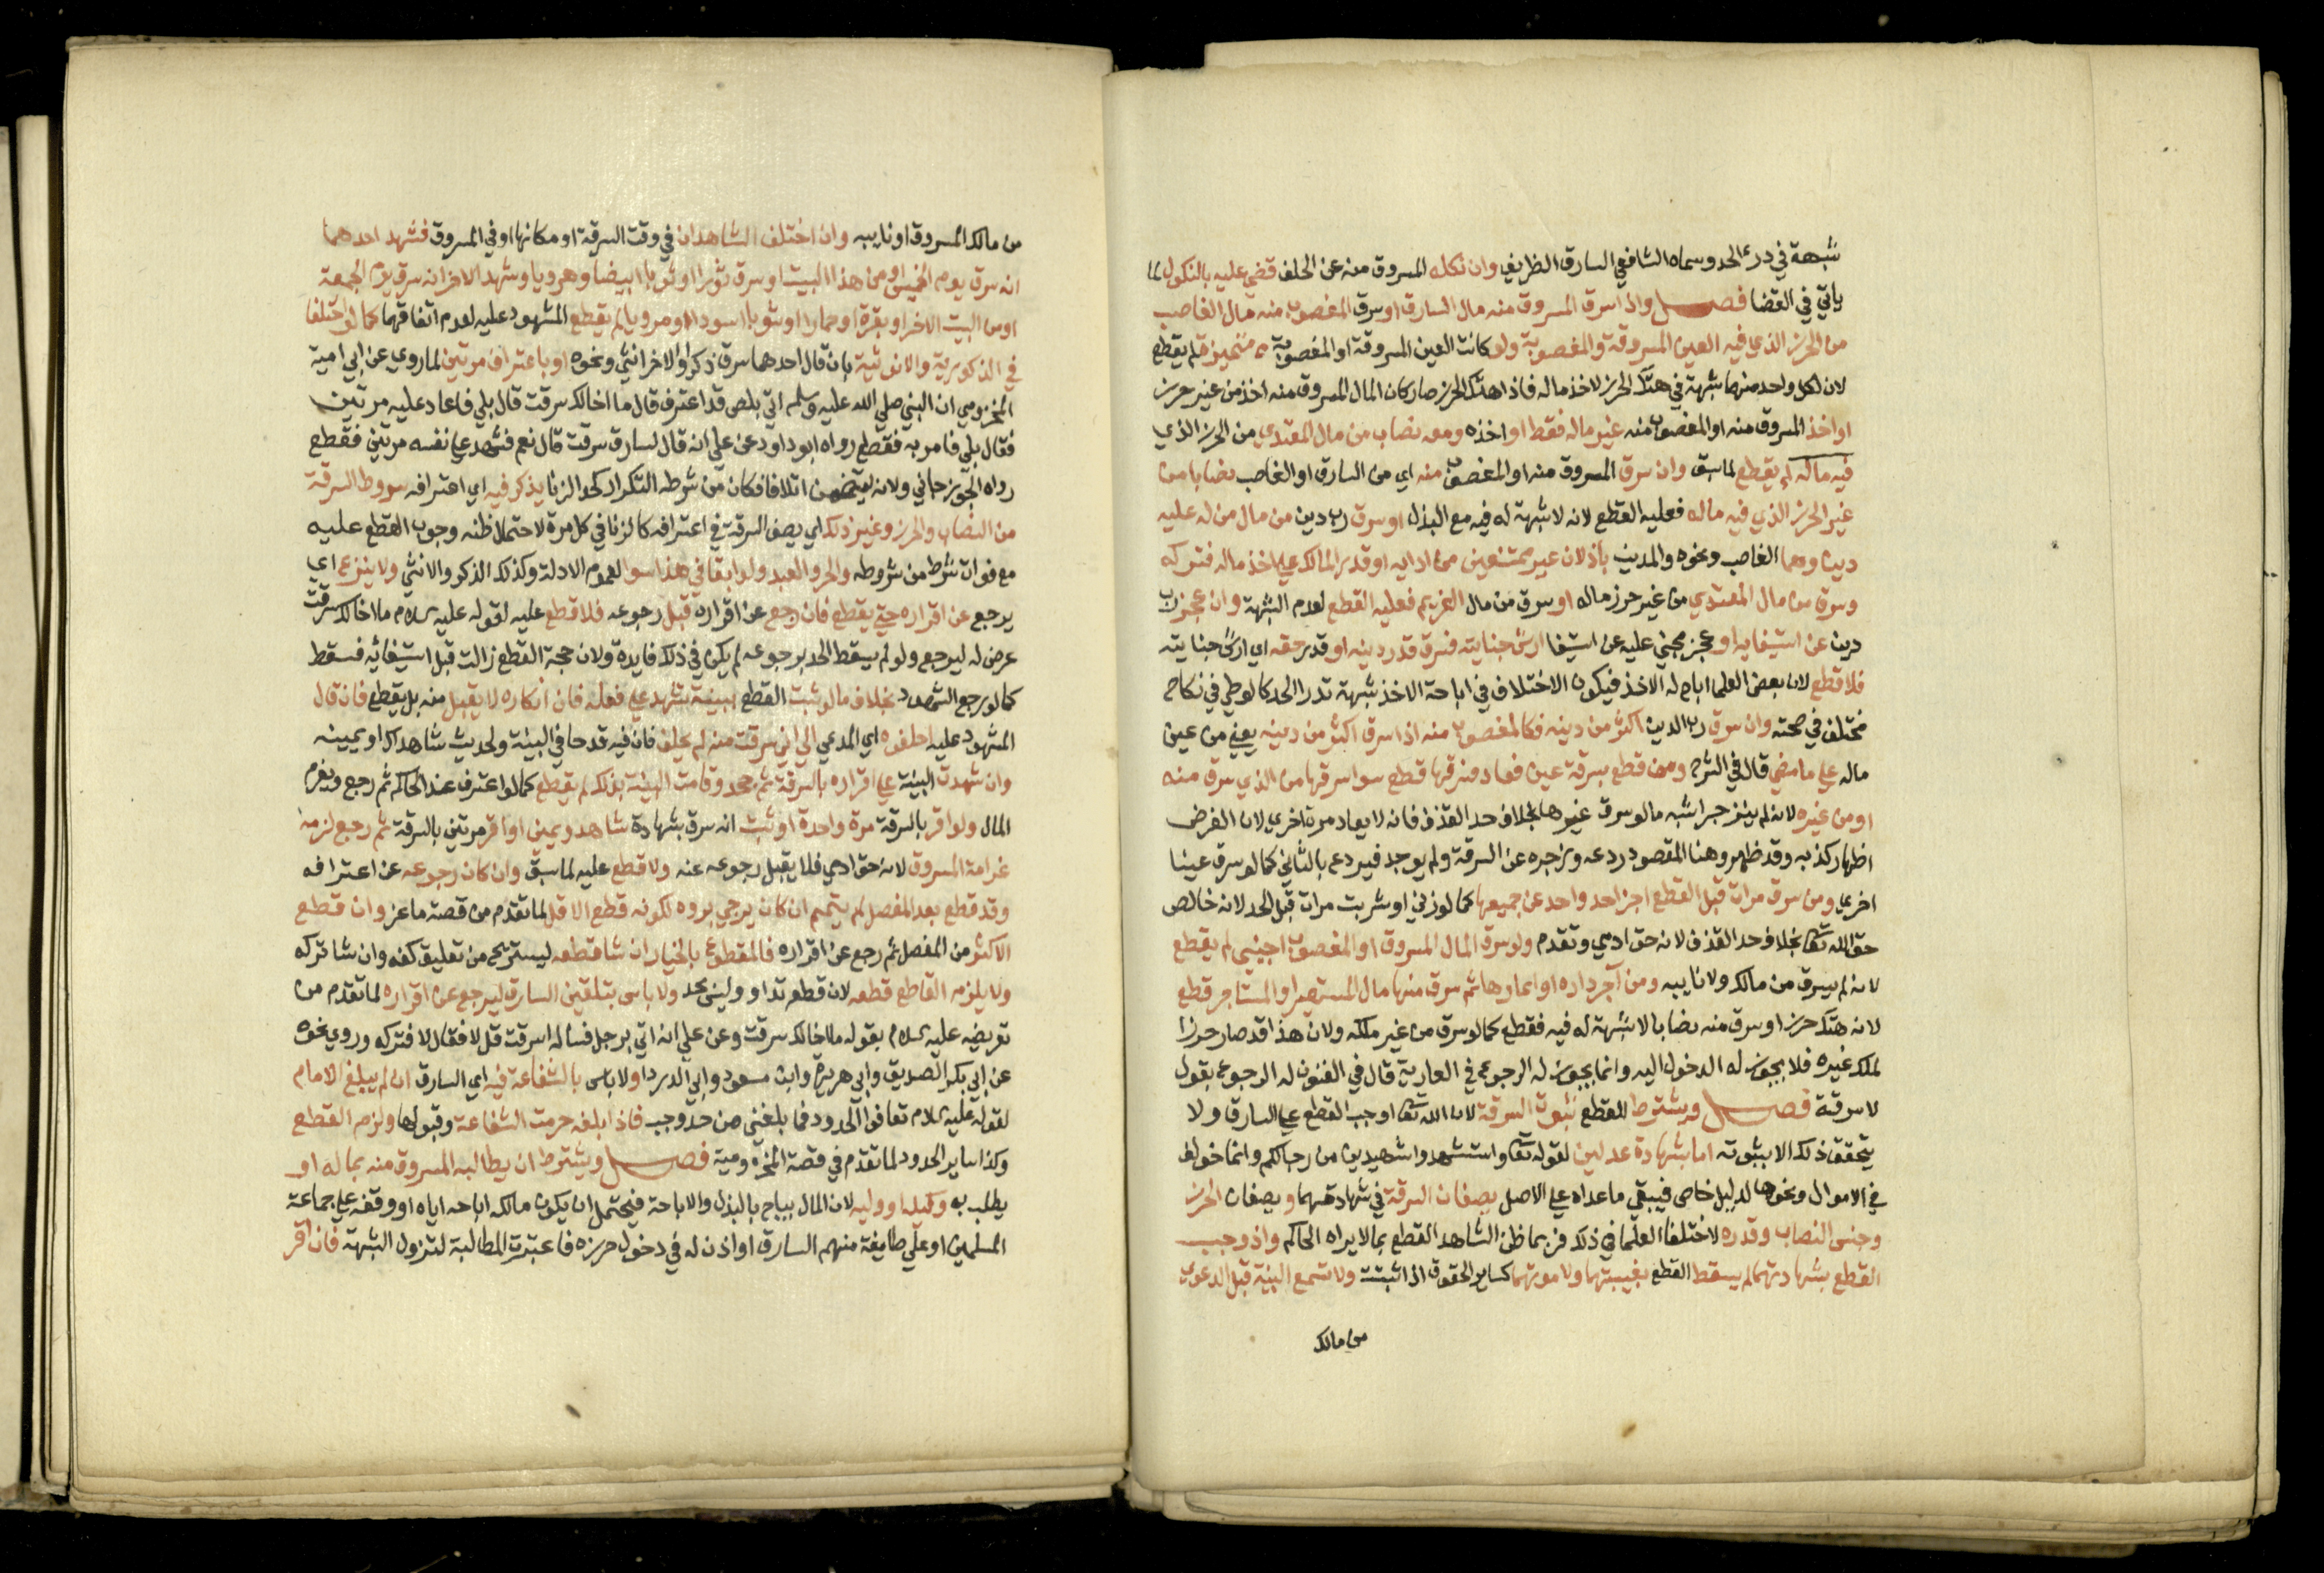 شبهة في درء الحد وسماه الشافعي السارق الظريف وان نكل المسروق منه عن الحلف قضي عليه بالنكول لما
ياتي في القضا فصل واذا سرق المسروق منه مال السارق او سرق المغصوب منه مال الغاصب
من الحرز الذي فيه العين المسروقة والمغصوبة ولو كانت العين المسروقة او المغصوبة متميزة لم يقطع
لان لكل واحد منهما شبهة في هتك الحرز لاخذ ماله فاذا هتك الحرز صار كان المال المسروق منه اخذ من غير حرز
او اخذ المسروق منه او المغصوب منه غير ماله فقط او اخذه ومعه نصاب من مال المتعدي من الحرز الذي
فيه ماله لم يقطع لما سبق وان سرق المسروق منه او المغصوب منه اي من السارق او الغاصب نصابا من
غير الحرز الذي فيه ماله فعليه القطع لانه لا شبهة له فيه مع البذل او سرق رب دين من مال من له عليه
دين وهما الغاصب ونحوه والمدين باذلان غير ممتنعين من ادايه او قدر المالك علي اخذ ماله فتركه
وسرق من مال المتعدي من غير حرز ماله او سرق من مال الغريم فعليه القطع لعدم الشبهة وان عجز رب
دين عن استيفايه او عجز مجني عليه عن استيفا ارش جنايته فسرق قدر دينه او قدر حقه اي ارش جنايته
فلا قطع لان بعض العلما اباح له الاخذ فيكون الاختلاف في اباحة الاخذ شبهة تدرا الحد كالوطي في نكاح
مختلف في صحته وان سرق رب الدين اكثر من دينه فكالمغصوب منه اذا سرق اكثر من دينه يعني من عين
ماله علي ما مضي قال في الشرح ومن قطع بسرقة عين فعاد فسرقها قطع سوا سرقها من الذي سرق منه
او من غيره لانه لم ينزجر اشبه ما لو سرق غيرها بخلاف حد القذف فانه لا يعاد مرة اخري لان الغرض
اظهار كذبه وقد ظهر وهنا المقصود ردعه وزجره عن السرقة ولم يوجد فيردع بالثاني كما لو سرق عينا
اخري ومن سرق مرات قبل القطع اجزا حد واحد عن جميعها كما لو زني او شربت مرات قبل الحد لانه خالص
حق الله تعا بخلاف حد القذف لانه حق ادمي وتقدم ولو سرق المال المسروق او المغصوب اجنبي لم يقطع
لانه لم يسرق من مالك ولا نايبه ومن آجر داره او اعارها ثم سرق منها مال المستعير او المستاجر قطع
لانه هتك حرزا وسرق منه نصابا لا شبهة له فيه فقطع كما لو سرق من غير ملكه ولان هذا قد صار حرزا
لملك غيره فلا يجوز له الدخول اليه وانما يجوز له الرجوع في العارية قال في الفنون له الرجوع بقول
لا سرقة فصل ويشترط للقطع ثبوت السرقة لان الله تعا اوجب القطع علي السارق ولا
يتحقق ذلك الا بثبوته اما بشهادة عدلين لقوله تعا واستشهدوا شهيدين من رجالكم وانما خولف
في الاموال ونحوها لدليل خاص فيبقي ما عداه علي الاصل يصفان السرقة في شهادتهما ويصفان الحرز
وجنس النصاب وقدره لاختلاف العلما في ذلك فربما ظن الشاهد القطع بما لا يراه الحاكم واذ وجب
القطع بشهادتهما لم يسقط القطع بغيبتهما ولا موتهما كساير الحقوق اذا ثبتت ولا تسمع البينة قبل الدعوي
من مالك
من مالك المسروق او نايبه وان اختلف الشاهدان في وقت السرقة او مكانها او في المسروق فشهد احدهما
انه سرق يوم الخميس او من هذا البيت او سرق ثورا او ثوبا ابيضا وهرويا وشهد الاخر انه سرق يوم الجمعة
او من البيت الاخر او بقرة او حمارا او ثوبا اسود او مرويا لم يقطع المشهود عليه لعدم اتفاقهما كما لو اختلفا
في الذكورية والانوثية بان قال احدهما سرق ذكرا والاخر انثي ونحوه او باعتراف مرتين لما روي عن ابي امية
المخزومي ان النبي صلي الله عليه وسلم اتي بلص قد اعترف قال ما اخالك سرقت قال بلي فاعاد عليه مرتين
فقال بلي فامر به فقطع رواه ابو داود وعن علي انه قال لسارق سرقت قال نعم فشهد علي نفسه مرتين فقطع
رواه الجوزجاني ولانه يتضمن اتلافا فكان من شرطه التكرار كحد الزنا يذكر فيه اي اعترافه شروط السرقة
من النصاب والحرز وغير ذلك اي يصف السرقة في اعترافه كالزنا في كل مرة لاحتمال ظنه وجوب القطع عليه
مع فوات شرط من شروطه والحر والعبد ولو ابقا في هذا سوا لعموم الادلة وكذلك الذكر والانثي ولا ينزع اي
يرجع عن اقراره حتي يقطع فان رجع عن اقراره قبل رجوعه فلا قطع عليه لقوله عليه السلام ما اخالك سرقت
عرض له ليرجع ولو لم يسقط الحد برجوعه لم يكن في ذلك فايدة ولان حجة القطع زالت قبل استيفائه فسقط
كما لو رجع الشهود بخلاف ما لو ثبت القطع ببينة شهدت علي فعله فان انكاره لا يقبل منه بل يقطع فان قال
المشهود عليه احلفوه اي المدعي اني سرقت منه لم يحلف فان فيه قدحا في البينة ولحديث شاهداك او يمينه
وان شهدت البينة علي اقراره بالسرقة ثم جحد وقامت البينة بذلك لم يقطع كما لو اعترف عند الحاكم ثم رجع ويغرم
المال ولو اقر بالسرقة مرة واحدة او ثبت انه سرق بشهادة شاهد ويمين او اقر مرتين بالسرقة ثم رجع لزمه
غرامة المسروق لانه حق ادمي فلا يقبل رجوعه عنه ولا قطع عليه لما سبق وان كان رجوعه عن اعترافه
وقد قطع بعد المفصل لم يتمم ان كان يرجي بروه لكونه قطع الاقل لما تقدم من قصة ماعز وان قطع
الاكثر من المفصل ثم رجع عن اقراره فالمقطوع بالخيار ان شا قطعه ليستريح من تعليق كفه وان شا تركه
ولا يلزم القاطع قطعه لان قطعه تداو وليس بحد ولا باس بتلقين السارق ليرجع عن اقراره لما تقدم من
تعريضه عليه السلام بقوله ما اخالك سرقت وعن علي انه اتي برجل فساله اسرقت قل لا فقال لا فتركه وروي نحوه
عن ابي بكر الصديق وابي هريرة وابن مسعود وابي الدردا ولا باس بالشفاعة فيه اي السارق ان لم يبلغ الامام
لقوله عليه السلام تعافوا الحدود فما بلغني من حد وجب فاذا بلغه حرمت الشفاعة وقبولها ولزم القطع
وكذا ساير الحدود لما تقدم في قصة المخزومية فصل ويشترط ان يطالبه المسروق منه بماله او
يطلب به وكيله او وليه لان المال يباح بالبذل والاباحة فيحتمل ان يكون مالكه اباحه اياه او وقفه علي جماعة
المسلمين او علي طايفة منهم السارق او اذن له في دخول حرزه فاعتبرت المطالبة لتزول الشبهة فان اقر